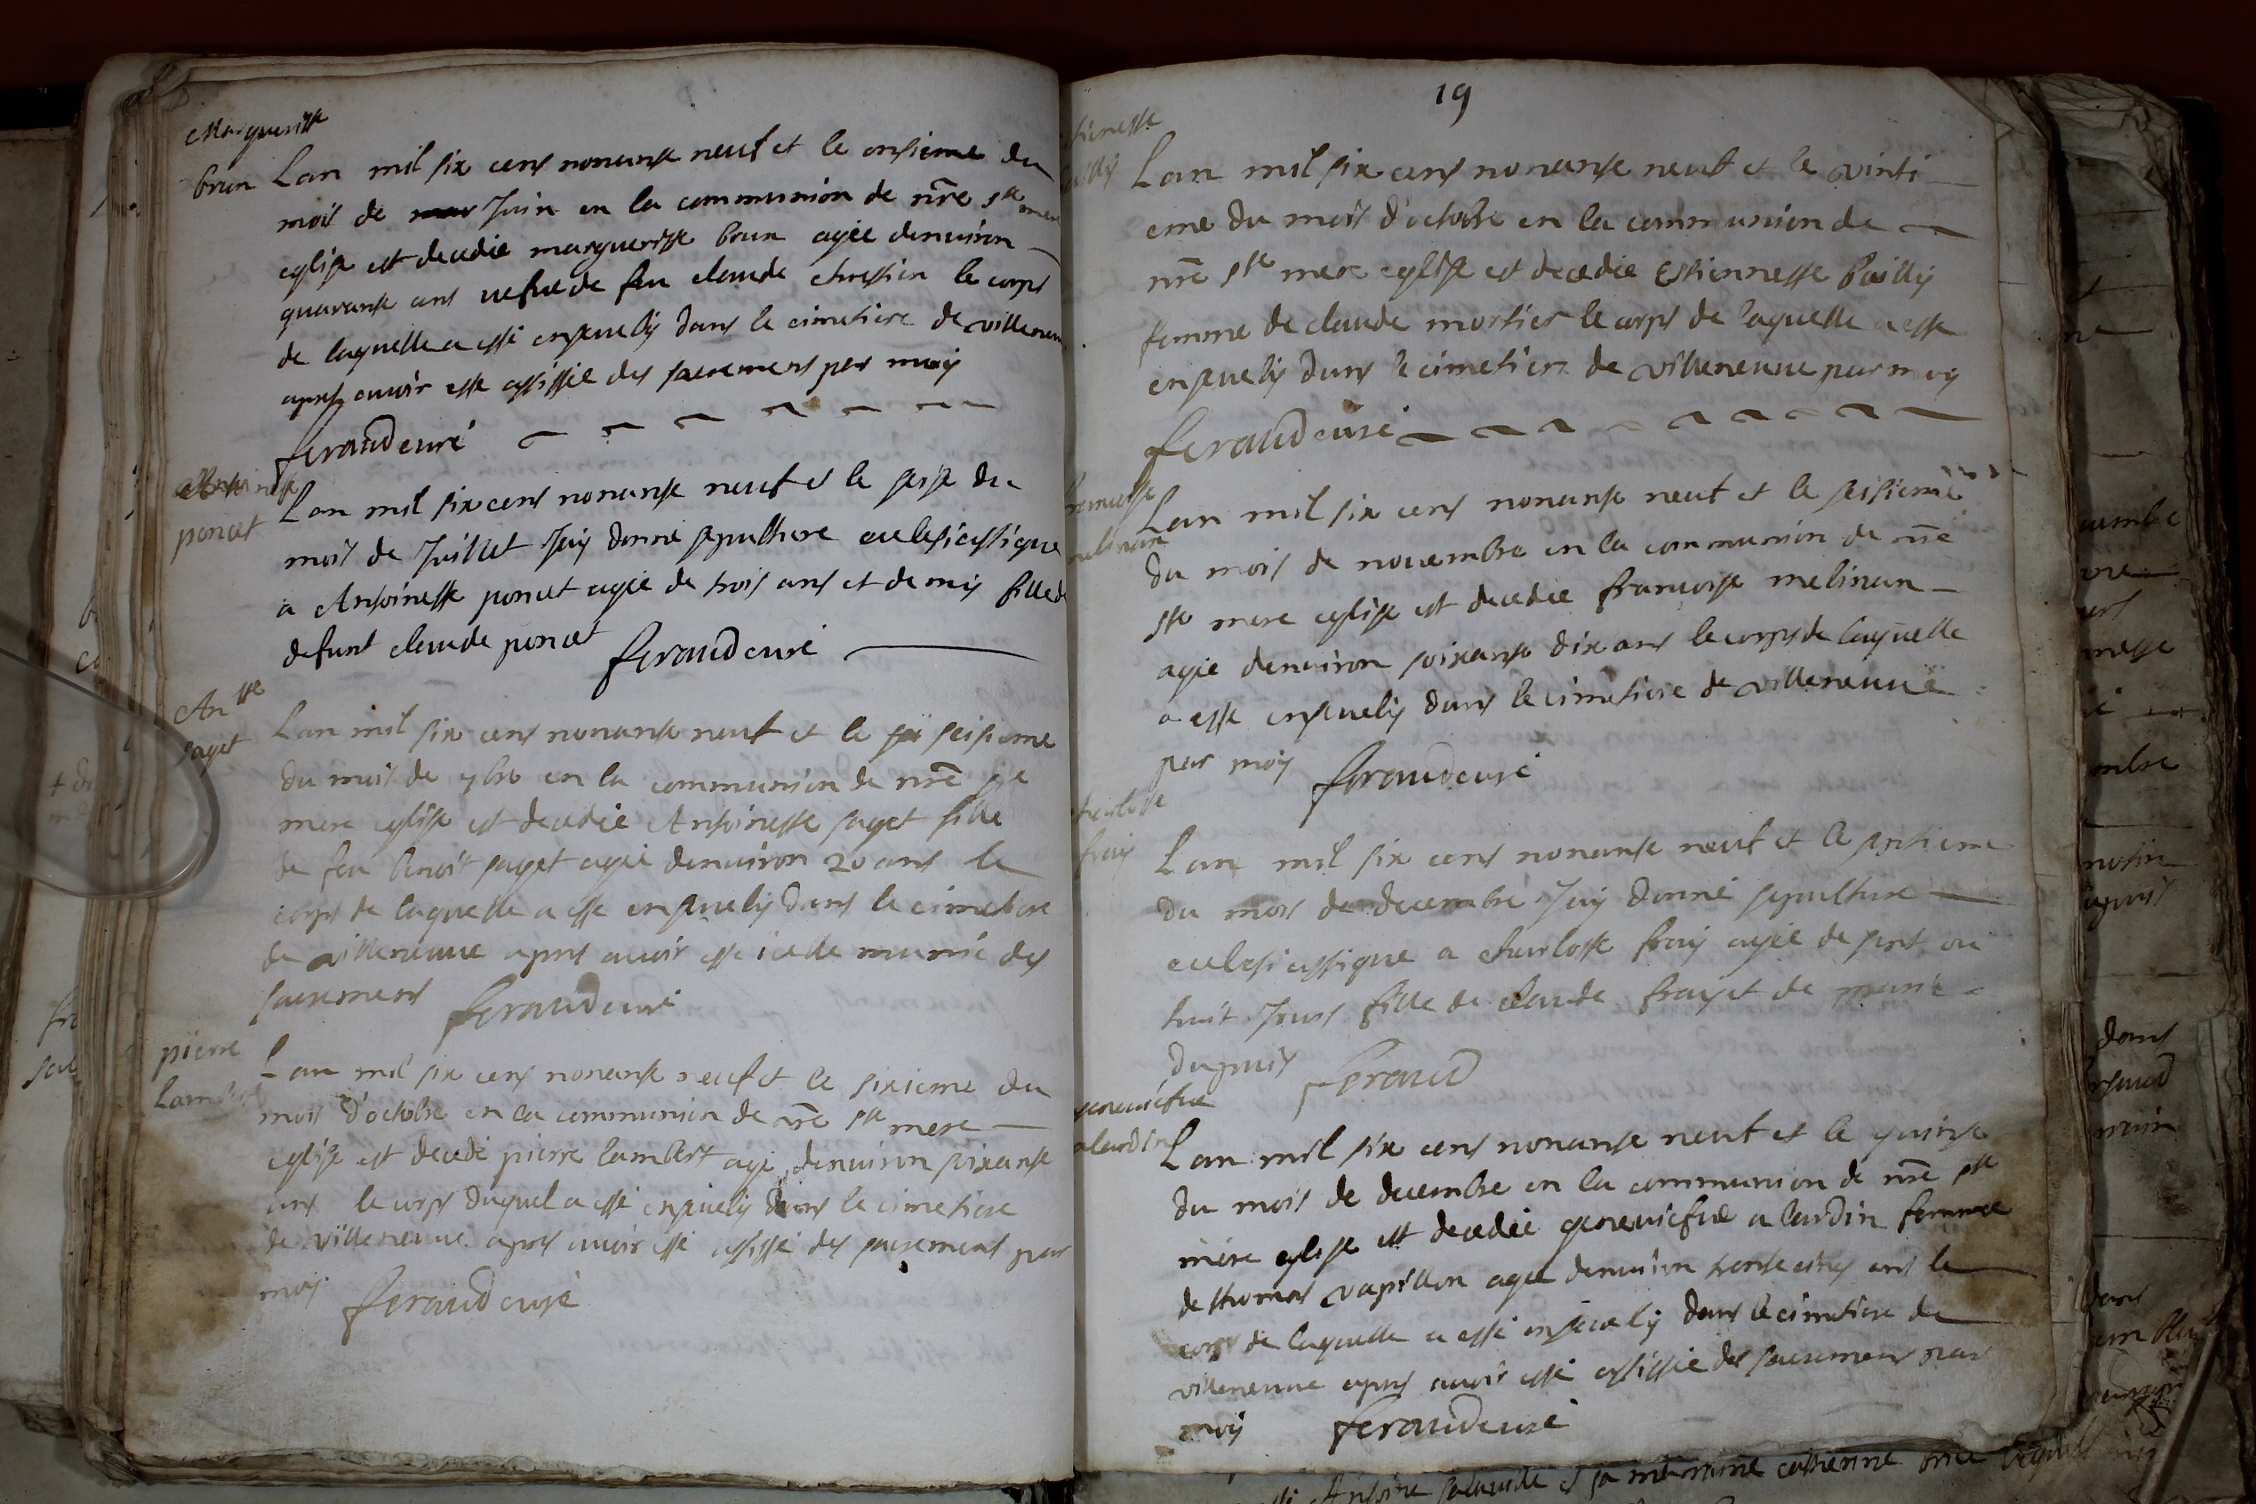 Margueritte
brun
Lan mil six cens nonante neuf et le onsieme du
mois de Juin en la communion de nre ste mere
eglise est decedée margueritte brun agée denuiron
quarante ans uefue de feu claude chrestien le corps
de laquelle a esté enseuely dans le cimetiere de villeneuue
apres auoir esté assistée des sacremens par moy
feraud curé
Antoinette
poncet
Lan mil six cens nonante neuf et le seise du
mois de Juillet Jay donné sepulture eclesiastique
a Antoinette poncet agée de trois ans et demy fille de
defunt claude poncet feraud curé
Antte
paget
Lan mil six cens nonante neuf et le seisieme
du mois de 9bre en la communion de nre ste
mere eglise est decedée Antoinette paget fille
de feu benoit paget agée denuiron 20 ans le
corps de laquelle a esté enseuely dans le cimetiere
de villeneuue apres auoir esté icelle munie des
sacremens feraud curé
pierre
Lambert
Lan mil six cens nonante neuf et le sixieme du
mois d'octobre en la communion de nre ste mere
eglise est decedé pierre lambert agé denuiron soixante
ans le corps duquel a esté enseuely dans le cimetiere
de villeneuue apres auoir esté assisté des sacremens par
moy feraud curé
19
Lan mil six cens nonante neuf et le vinti
eme du mois d'octobre en la communion de
nre ste mere eglise est decedée Estiennette bailly
femme de claude mortier le corps de laquelle a esté
enseuely dans le cimetiere de villeneuue par moy
feraud curé
Lan mil six cens nonante neuf et le seisieme
du mois de nouembre en la communion de nre
ste mere eglise est decedée francoise melinan
agée denuiron soixante dix ans le corps de laquelle
a esté enseuely dans le cimetiere de villeneuue
par moy feraud curé
Lan mil six cens nonante neuf et le septieme
du mois de decembre Jay donné sepulture
eclesiastique a charlotte fray agée de sept ou
huit Jours fille de claude fray et de marie
dupuis feraud
geneuiefue
alardin
Lan mil six cens nonante neuf et le quinse
du mois de decembre en la communion de nre ste
mere eglise est decedée geneuiefue alardin femme
de thomas vapillon agée denuiron trente cinq ans le
corps de laquelle a esté enseuely dans le cimetiere de
villeneuue apres auoir esté assistée des sacremens par
moy feraud curé